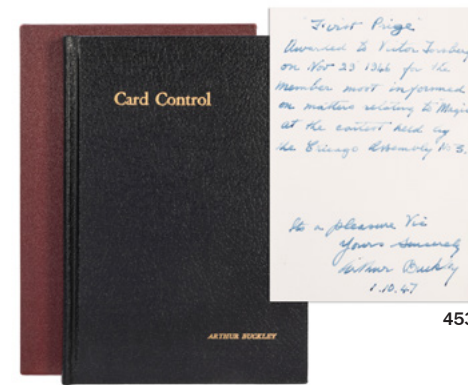 Card Control
ARTHUR BUCKLEY
"First Prize"
Awarded to Victor Torsberg
on Nov 25 1946 for the
member most informed
on matters relating to Magic
at the contest held by
the Chicago Assembly No 3.
Its a pleasure Vic
Yours Sincerely
Arthur Buckley
1.10.47
453